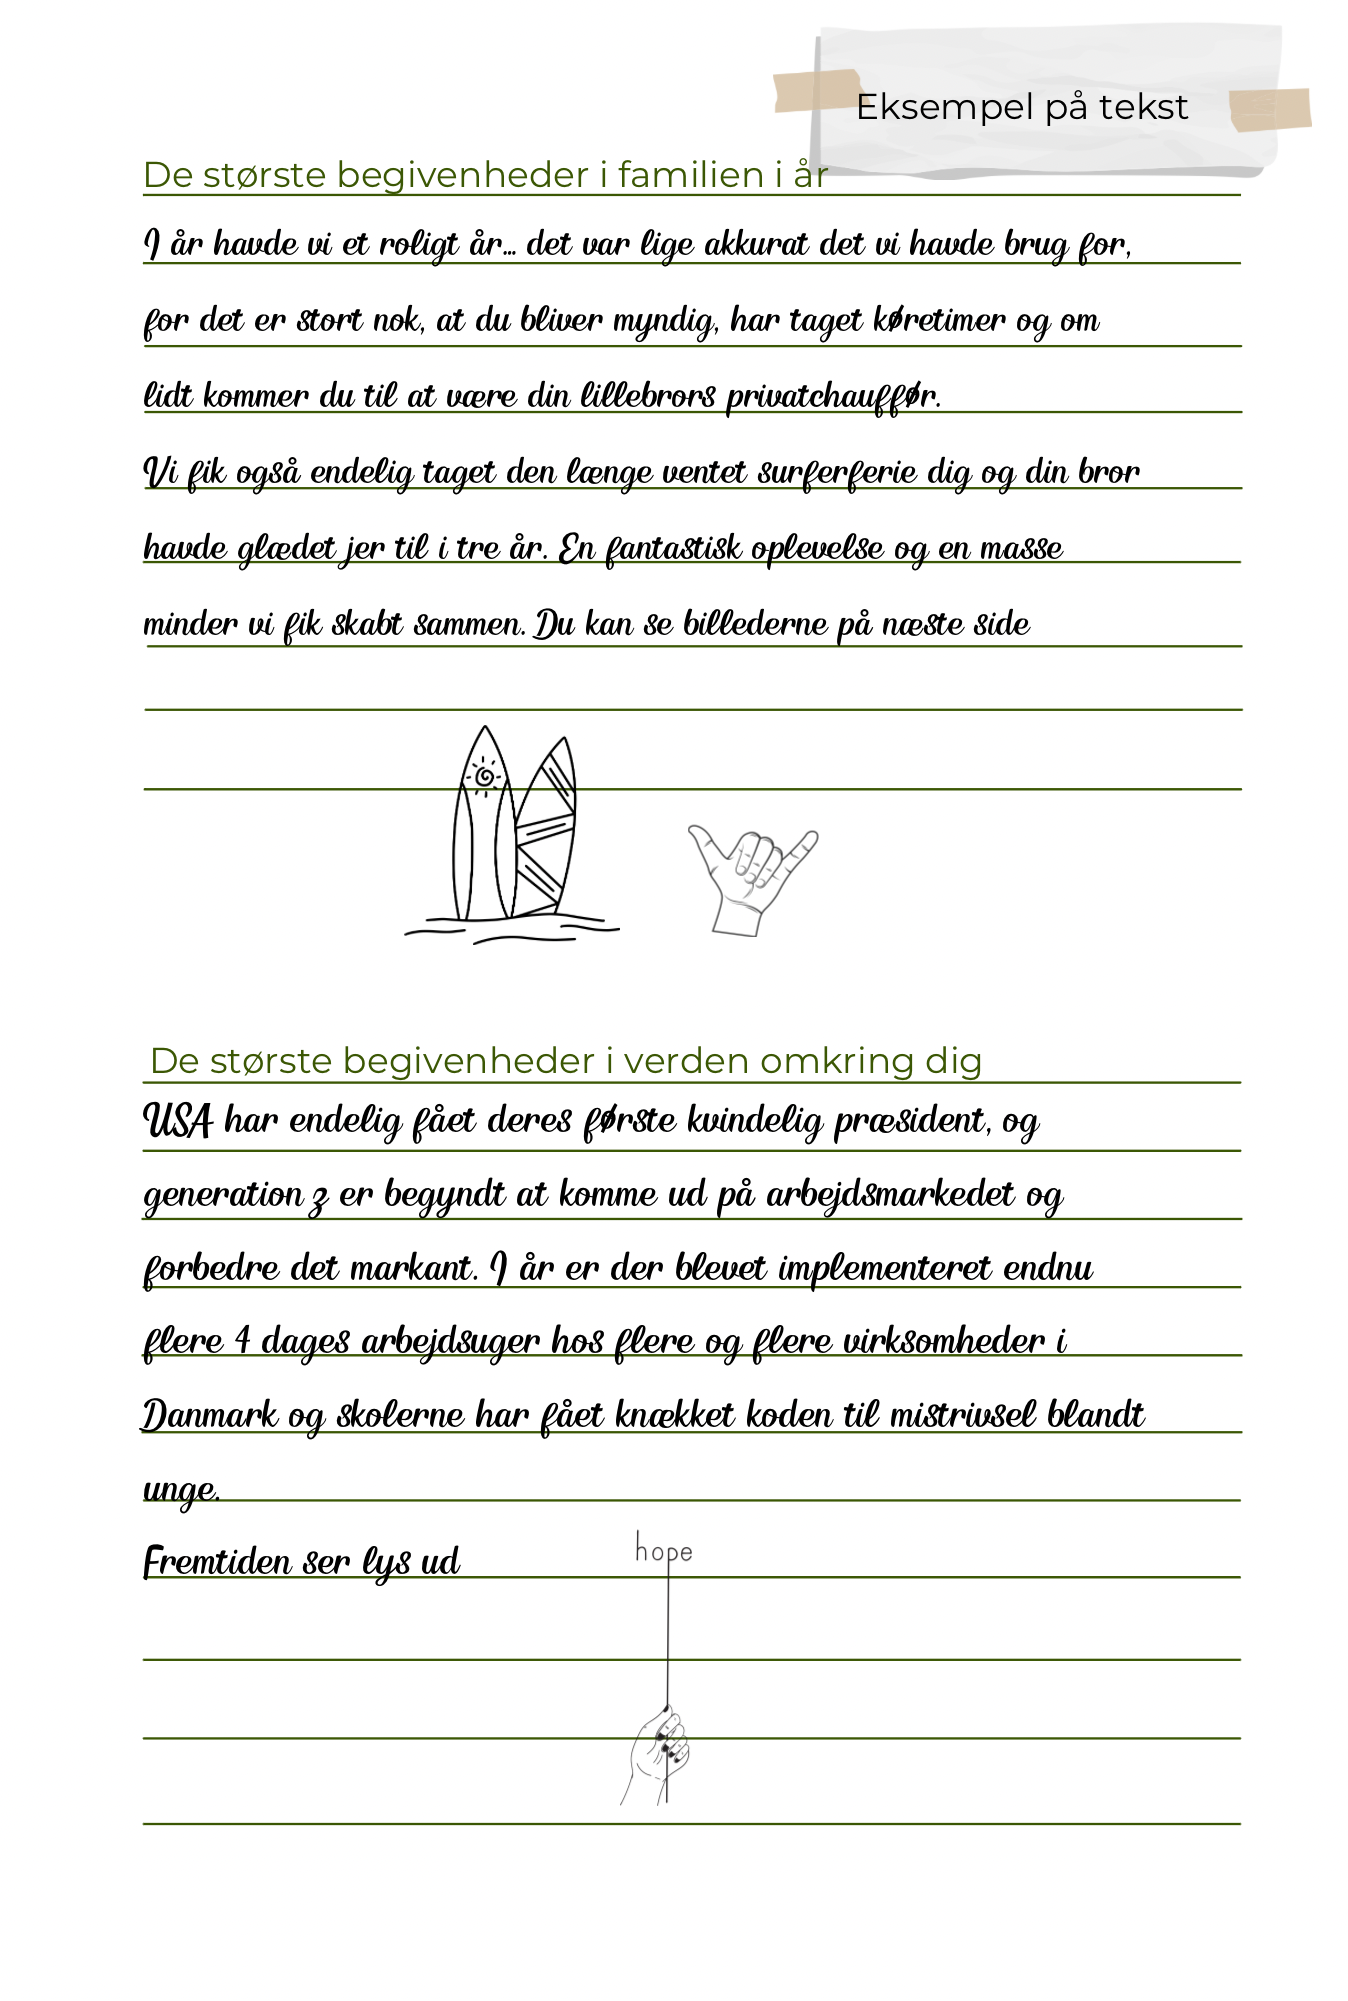 Eksempel på tekst
De største begivenheder i familien i år
I år havde vi et roligt år... det var lige akkurat det vi havde brug for,
for det er stort nok, at du bliver myndig, har taget køretimer og om
lidt kommer du til at være din lillebrors privatchauffør.
Vi fik også endelig taget den længe ventet surferferie dig og din bror
havde glædet jer til i tre år. En fantastisk oplevelse og en masse
minder vi fik skabt sammen. Du kan se billederne på næste side
De største begivenheder i verden omkring dig
USA har endelig fået deres første kvindelig præsident, og
generation z er begyndt at komme ud på arbejdsmarkedet og
forbedre det markant. I år er der blevet implementeret endnu
flere 4 dages arbejdsuger hos flere og flere virksomheder i
Danmark og skolerne har fået knækket koden til mistrivsel blandt
unge.
Fremtiden ser lys ud
hope